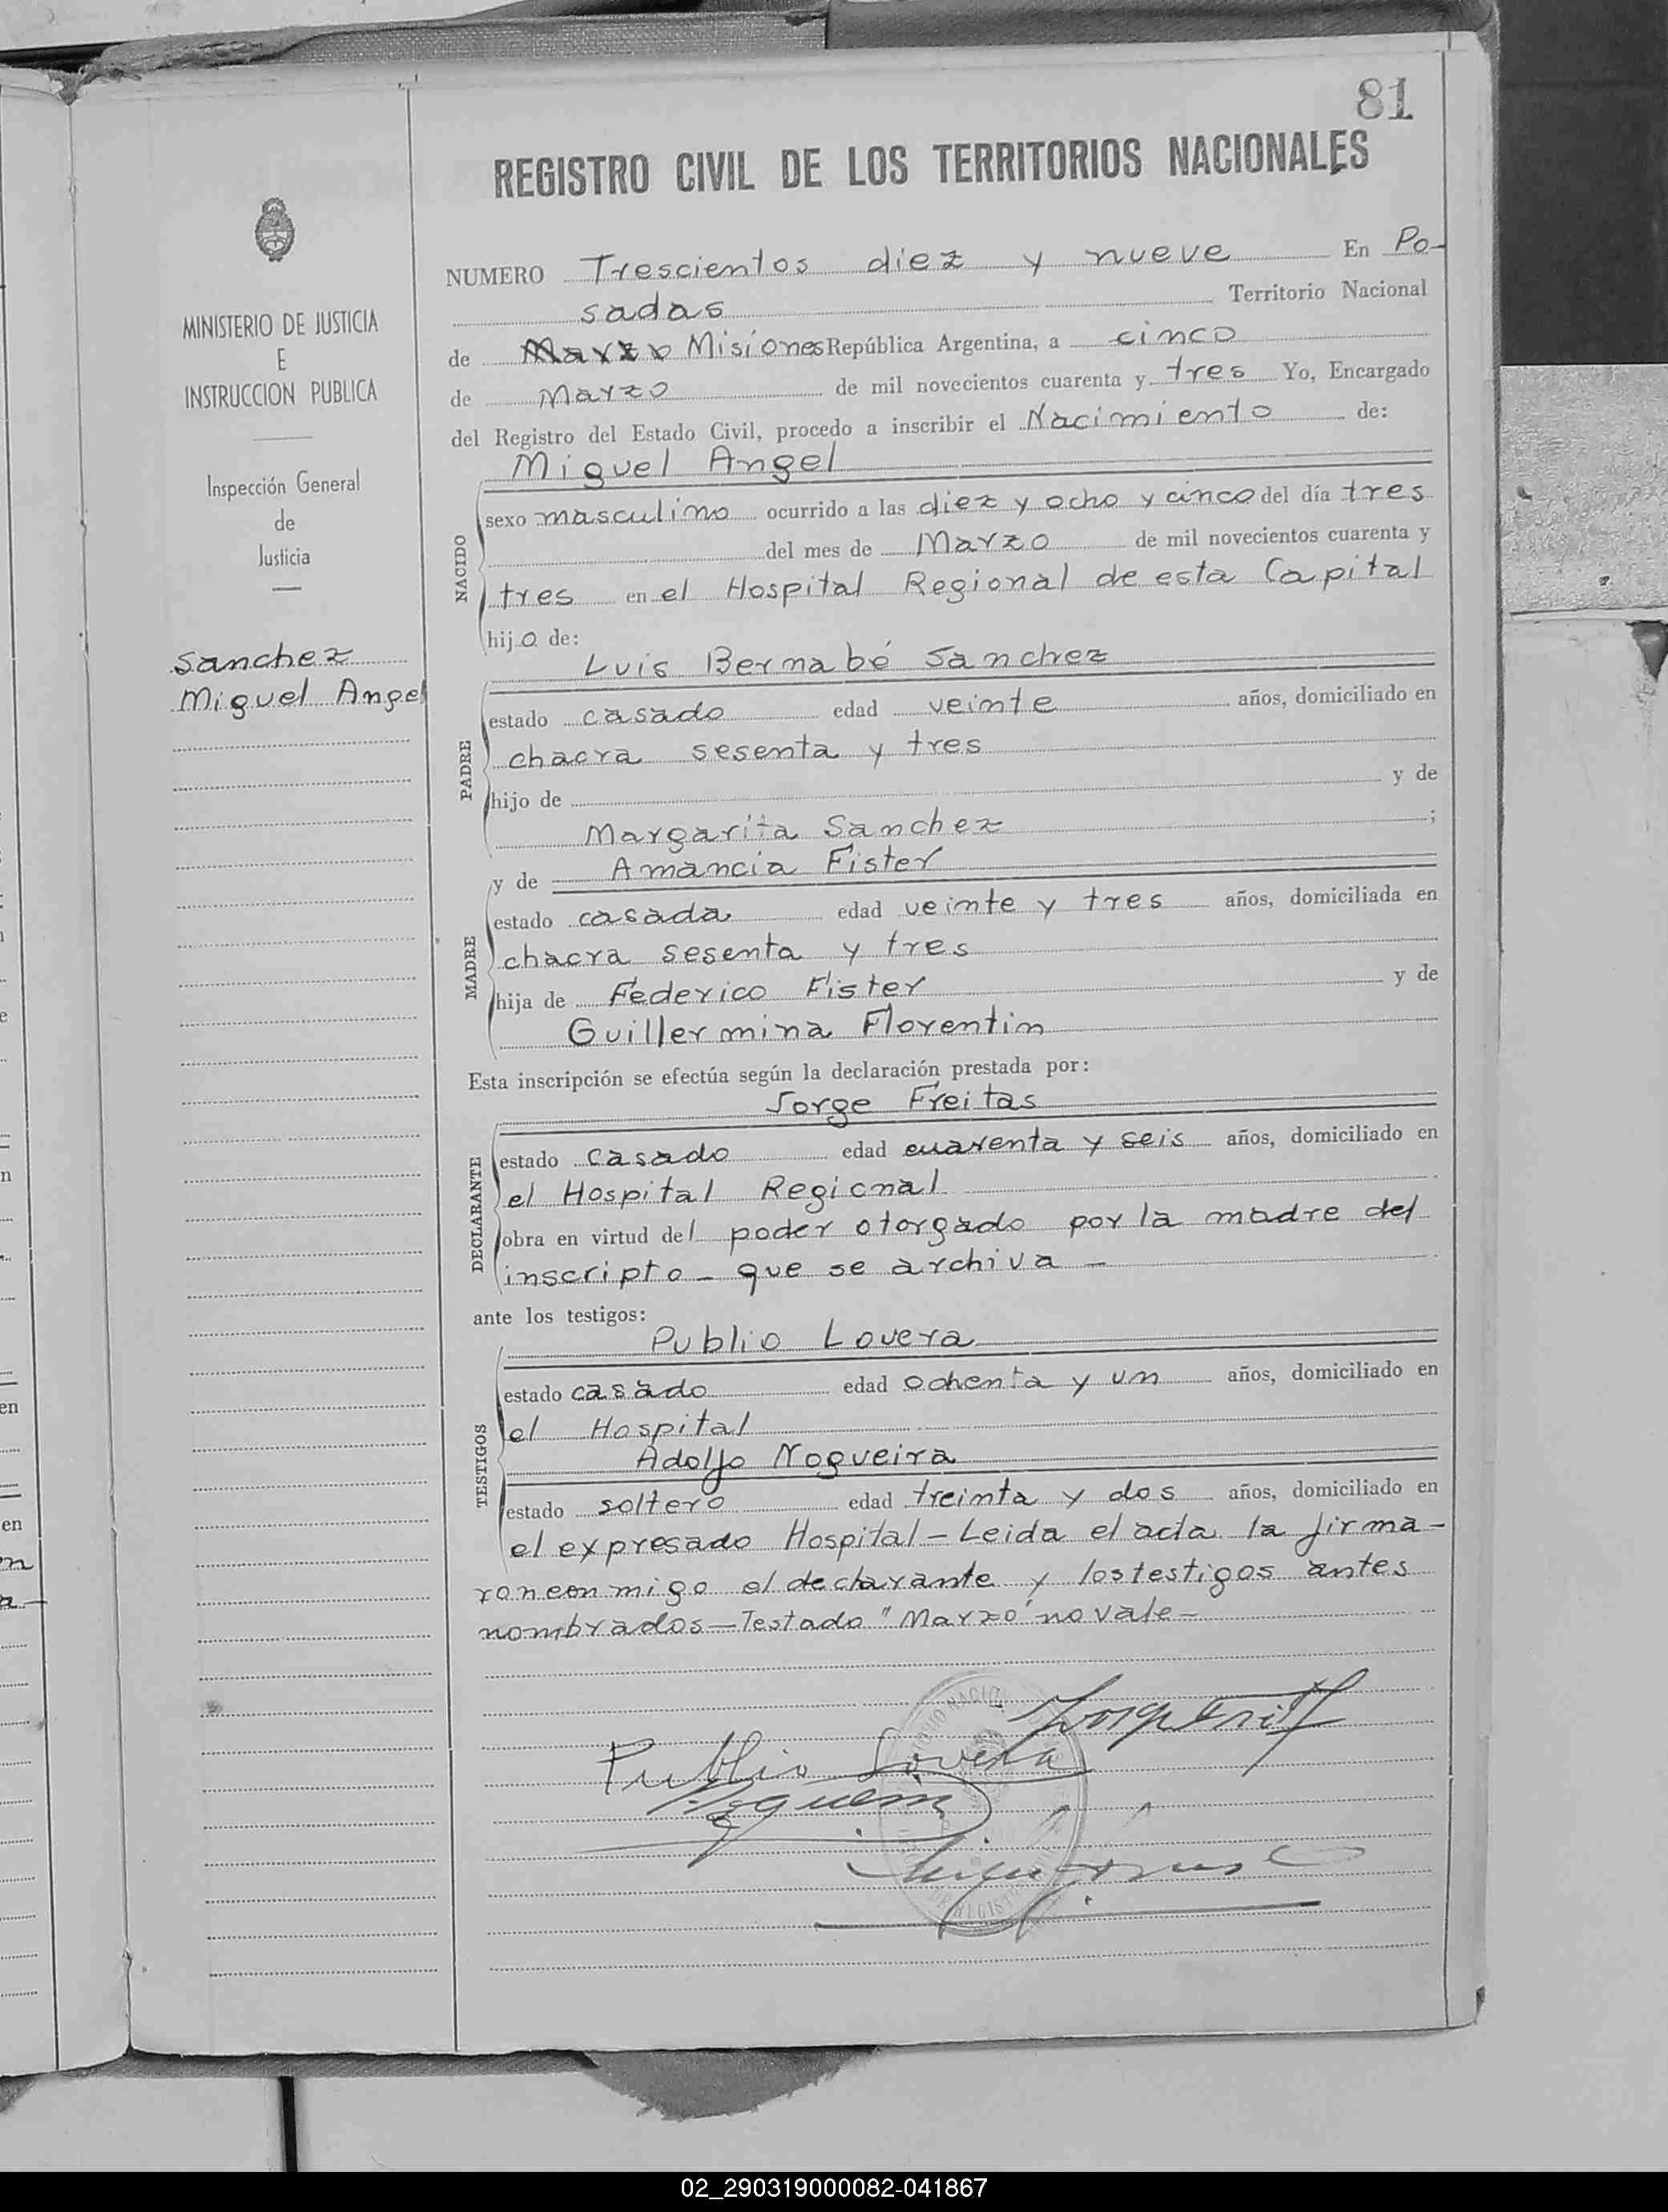 81
REGISTRO CIVIL DE LOS TERRITORIOS NACIONALES
MINISTERIO DE JUSTICIA
E
INSTRUCCION PUBLICA
Inspección General
de
Justicia
Sanchez
Miguel Angel
NUMERO Trescientos diez y nueve En Po-
sadas Territorio Nacional
de Marzo Misiones República Argentina, a cinco
de Marzo de mil novecientos cuarenta y tres Yo, Encargado
del Registro del Estado Civil, procedo a inscribir el Nacimiento de:
NACIDO
Miguel Angel
sexo masculino ocurrido a las diez y ocho y cinco del día tres
del mes de Marzo de mil novecientos cuarenta y
tres en el Hospital Regional de esta Capital
hijo de:
PADRE
Luis Bernabé Sanchez
estado casado edad veinte años, domiciliado en
chacra sesenta y tres
hijo de y de
Margarita Sanchez ;
MADRE
y de Amancia Fister
estado casada edad veinte y tres años, domiciliada en
chacra sesenta y tres
hija de Federico Fister y de
Guillermina Florentin
Esta inscripción se efectúa según la declaración prestada por:
DECLARANTE
Jorge Freitas
estado casado edad cuarenta y seis años, domiciliado en
el Hospital Regional
obra en virtud del poder otorgado por la madre del
inscripto - que se archiva -
ante los testigos:
TESTIGOS
Publio Lovera
estado casado edad ochenta y un años, domiciliado en
el Hospital
Adolfo Nogueira
estado soltero edad treinta y dos años, domiciliado en
el expresado Hospital - Leida el acta la firma-
ron conmigo el declarante y los testigos antes
nombrados - Testado "Marzo" no vale -
Publio Lovera
02_290319000082-041867